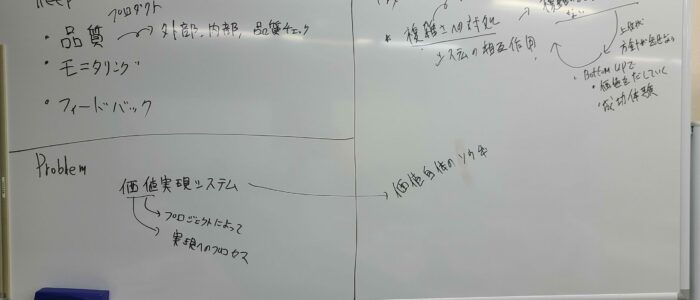 プロダクト
・品質 → 外部、内部、品質チェック
・モニタリング
・フィードバック
Problem
価値実現システム
プロジェクトによって
実現へのプロセス
複雑さへの対処
システムの相互作用
上段が
方針が
Bottom upで
・価値をだしていく
・成功体験
価値自体の